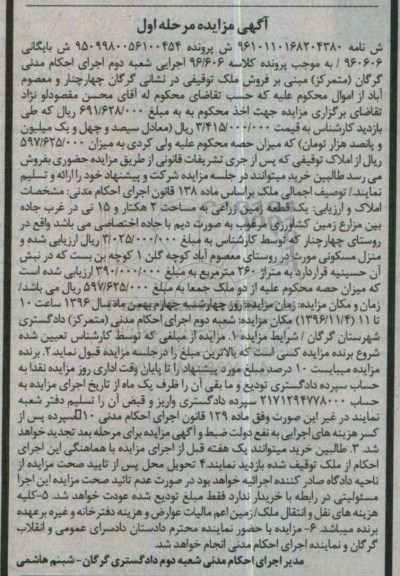 آگهی مزایده مرحله اول
ش نامه ۹۶۱۰۱۱۰۱۶۸۲۰۴۳۸۰ ش پرونده ۹۵۰۹۹۸۰۰۵۶۱۰۰۴۵۴ ش بایگانی
۹۶۰۶۰۶ / به موجب پرونده کلاسه ۹۶/۶۰۶ اجرایی شعبه دوم اجرای احکام مدنی
گرگان (متمرکز) مبنی بر فروش ملک توقیفی در نشانی گرگان چهارچنار و معصوم
آباد از اموال محکوم علیه که حسب تقاضای محکوم له آقای محسن مقصودلو نژاد
تقاضای برگزاری مزایده جهت اخذ محکوم به به مبلغ ۶۹۱/۶۲۸/۰۰۰ ریال که طی
بازدید کارشناس به قیمت ۳/۴۱۵/۰۰۰/۰۰۰ ریال (معادل سیصد و چهل و یک میلیون
و پانصد هزار تومان) که میزان حصه محکوم علیه ولی کردی به میزان ۵۹۷/۶۲۵/۰۰۰
ریال از املاک توقیفی که پس از جری تشریفات قانونی از طریق مزایده حضوری بفروش
می رسد طالبین خرید میتوانند در جلسه مزایده شرکت و پیشنهاد خود را ارائه و تسلیم
نمایند./ توصیف اجمالی ملک براساس ماده ۱۳۸ قانون اجرای احکام مدنی: مشخصات
املاک و ارزیابی: یک قطعه زمین زراعی به مساحت ۲ هکتار و ۱۵ نی در غرب جاده
بین مزارع زمین کشاورزی مرغوب به صورت دیم با جاده اختصاصی می باشد واقع در
روستای چهارچنار که توسط کارشناس به مبلغ ۳/۰۲۵/۰۰۰/۰۰۰ ریال ارزیابی شده و
منزل مسکونی مورث در روستای معصوم آباد کوچه گلن ۱ کوچه بن بست که در نبش
آن حسینیه قرار دارد به متراژ ۲۶۰ مترمربع به مبلغ ۳۹۰/۰۰۰/۰۰۰ ارزیابی شده است
که میزان حصه محکوم علیه از دو ملک جمعا به مبلغ ۵۹۷/۶۲۵/۰۰۰ ریال می باشد/
زمان و مکان مزایده: زمان مزایده: روز چهارشنبه چهارم بهمن ماه سال ۱۳۹۶ ساعت ۱۰
تا ۱۱ (۱۳۹۶/۱۱/۴) مکان مزایده: شعبه دوم اجرای احکام مدنی (متمرکز) دادگستری
شهرستان گرگان / شرایط مزایده ۱. مزایده از مبلغی که توسط کارشناس تعیین شده
شروع برنده مزایده کسی است که بالاترین مبلغ را در جلسه مزایده قبول نماید ۲. برنده
مزایده میبایست ۱۰ درصد مبلغ مورد پیشنهاد را تا پایان وقت اداری روز مزایده نقدا به
حساب سپرده دادگستری تودیع و ما بقی آن را ظرف یک ماه از تاریخ اجرای مزایده به
حساب ۲۱۷۱۲۹۴۷۷۸۰۰۰ سپرده دادگستری واریز و قبض آن را تسلیم دفتر شعبه
نمایند در غیر این صورت وفق ماده ۱۲۹ قانون اجرای احکام مدنی ۱۰ سپرده پس از
کسر هزینه های اجرایی به نفع دولت ضبط و آگهی مزایده برای مرحله بعد تجدید خواهد
شد. ۳. طالبین خرید میتوانند یک هفته قبل از اجرای مزایده با هماهنگی این اجرای
احکام از ملک توقیف شده بازدید نمایند ۴. تحویل محل پس از تایید صحت مزایده از
ناحیه دادگاه صادر کننده اجرائیه خواهد بود در صورت عدم تائید صحت مزایده این اجرا
مسئولیتی در رابطه با خریدار ندارد فقط مبلغ تودیع شده عودت خواهد شد. ۵-کلیه
هزینه های نقل و انتقال ملک/زمین اعم مالیات عوارض و هزینه دفترخانه و غیره برعهده
برنده میباشد. ۶- مزایده با حضور نماینده محترم دادستان دادسرای عمومی و انقلاب
گرگان و نماینده اجرای احکام مدنی انجام خواهد شد.
مدیر اجرای احکام مدنی شعبه دوم دادگستری گرگان- شبنم هاشمی